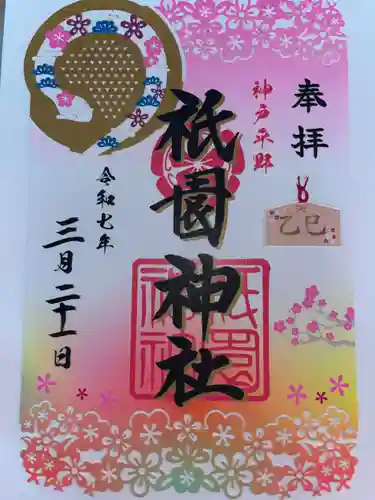 奉拝
神戸平野
乙巳
祇園神社
祇園神社
令和七年
三月二十一日